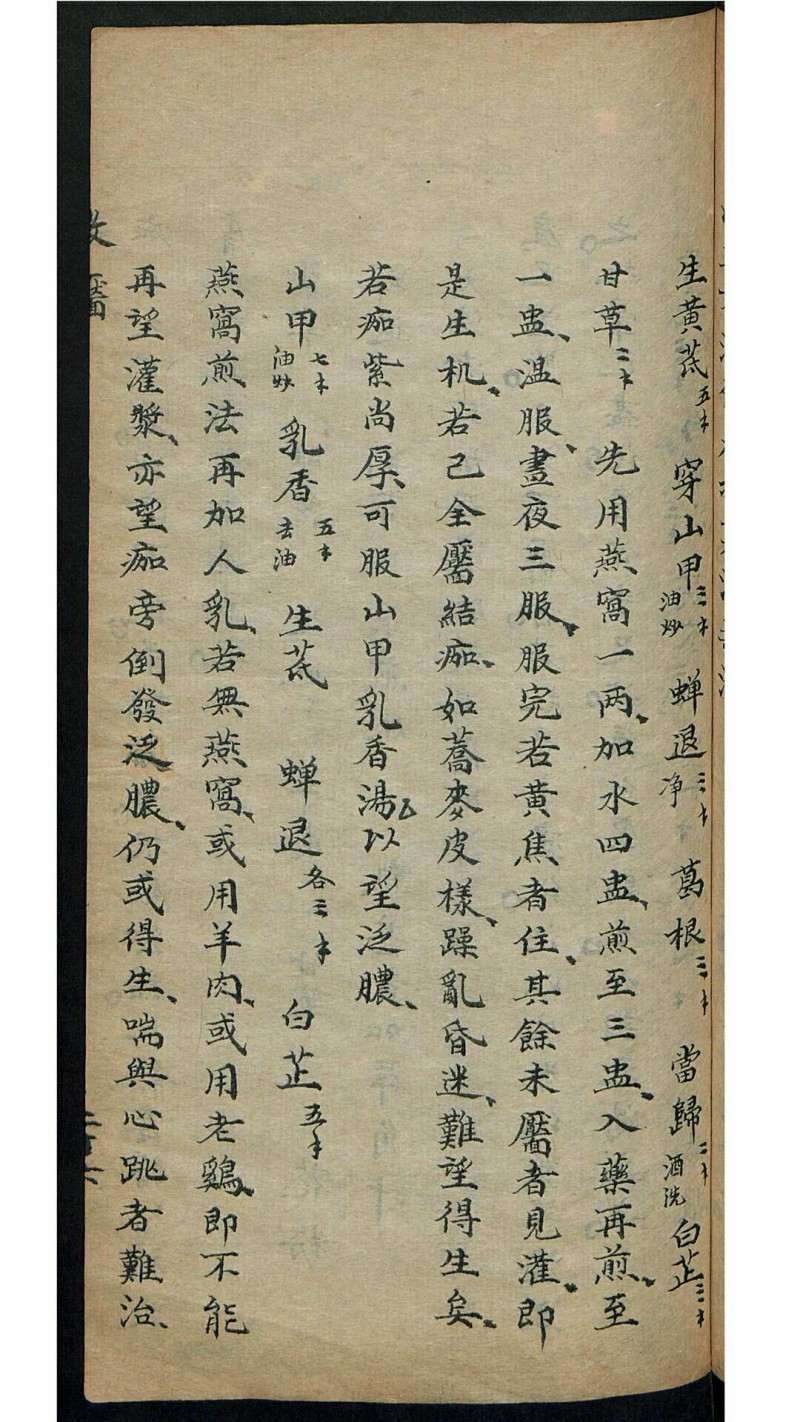 生黃茋五钅 穿山甲三钅油炒 蝉退三钅净 葛根三钅 當歸二钅酒洗 白芷三钅
甘草二钅 先用燕窩一两、加水四盅、煎至三盅、入藥再煎、至
一盅、温服、晝夜三服、服完若黄焦者住、其餘未靨者見灌、即
是生机、若己全靨結痂、如蕎麥皮樣、躁亂昏迷、難望得生矣、
若痂紫尚厚、可服山甲乳香湯、以望泛膿、
山甲七钅油炒 乳香五钅去油 生茋 蝉退各三钅 白芷五钅
燕窩煎法再加人乳、若無燕窩、或用羊肉、或用老鷄、即不能
再望灌漿、亦望痂旁倒發泛膿、仍或得生、喘與心跳者難治、
靨